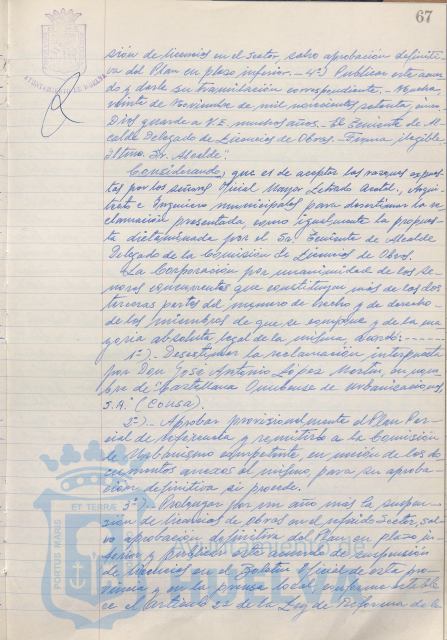 67
AYUNTAMIENTO DE HUELVA
sión de licencias en el sector salvo aprobación definiti-
va del Plan en plazo inferior.- 4º) Publicar este acuer-
do y darle su tramitación correspondiente.- Huelva,
veinte de Noviembre de mil novecientos setenta,
Dios guarde a V.E. muchos años.- El Teniente de Al-
calde Delegado de Licencias de Obras.- Firma ilegible
Iltmo. Sr. Alcalde".
Considerando, que es de aceptar las razones expues-
tas por los señores Oficial Mayor Letrado Acctal., Arqui-
tecto e Ingeniero municipales para desestimar la re-
clamación presentada, como igualmente la propues-
ta dictaminada por el Sr. Teniente de Alcalde
Delegado de la Comisión de Licencias de Obras.
La Corporación por unanimidad de los se-
ñores concurrentes que constituyen más de las dos
terceras partes del número de hecho y de derecho
de los miembros de que se compone y de la ma-
yoría absoluta legal de la misma, acordó:
1º).- Desestimar la reclamación interpuesta
por Don José Antonio López Martín, en nom-
bre de "Castellana Onubense de Urbanizaciones,
S.A." (Cousa).
2º).- Aprobar provisionalmente el Plan Par-
cial de referencia y remitirlo a la Comisión
de Urbanismo competente, en unión de los do-
cumentos anexos al mismo para su aproba-
ción definitiva si procede.
3º).- Prolongar por un año más la suspen-
sión de licencias de obras en el referido sector, sal-
vo aprobación definitiva del Plan en plazo in-
ferior y publicar este acuerdo de suspensión
de licencias en el Boletín Oficial de esta pro-
vincia y en la prensa local, conforme estable-
ce el artículo 2º de la Ley de Reforma de la
PORTUS MARIS
ET TERRAE
HUELVA